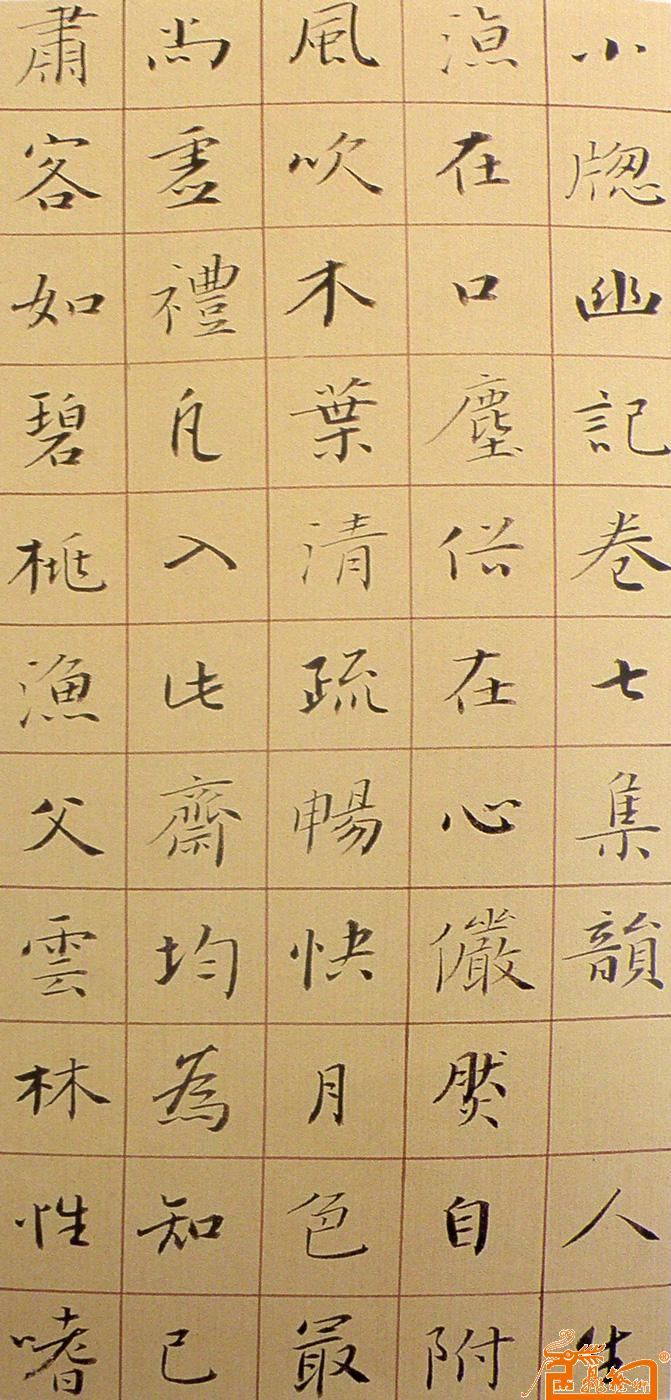 小牕幽記卷七集韻 人
在口塵俗在心儼然自附
風吹木葉清疏暢快月色最
尚虛禮凡入此齋均為知己
肅客如碧桃漁父雲林性嗜